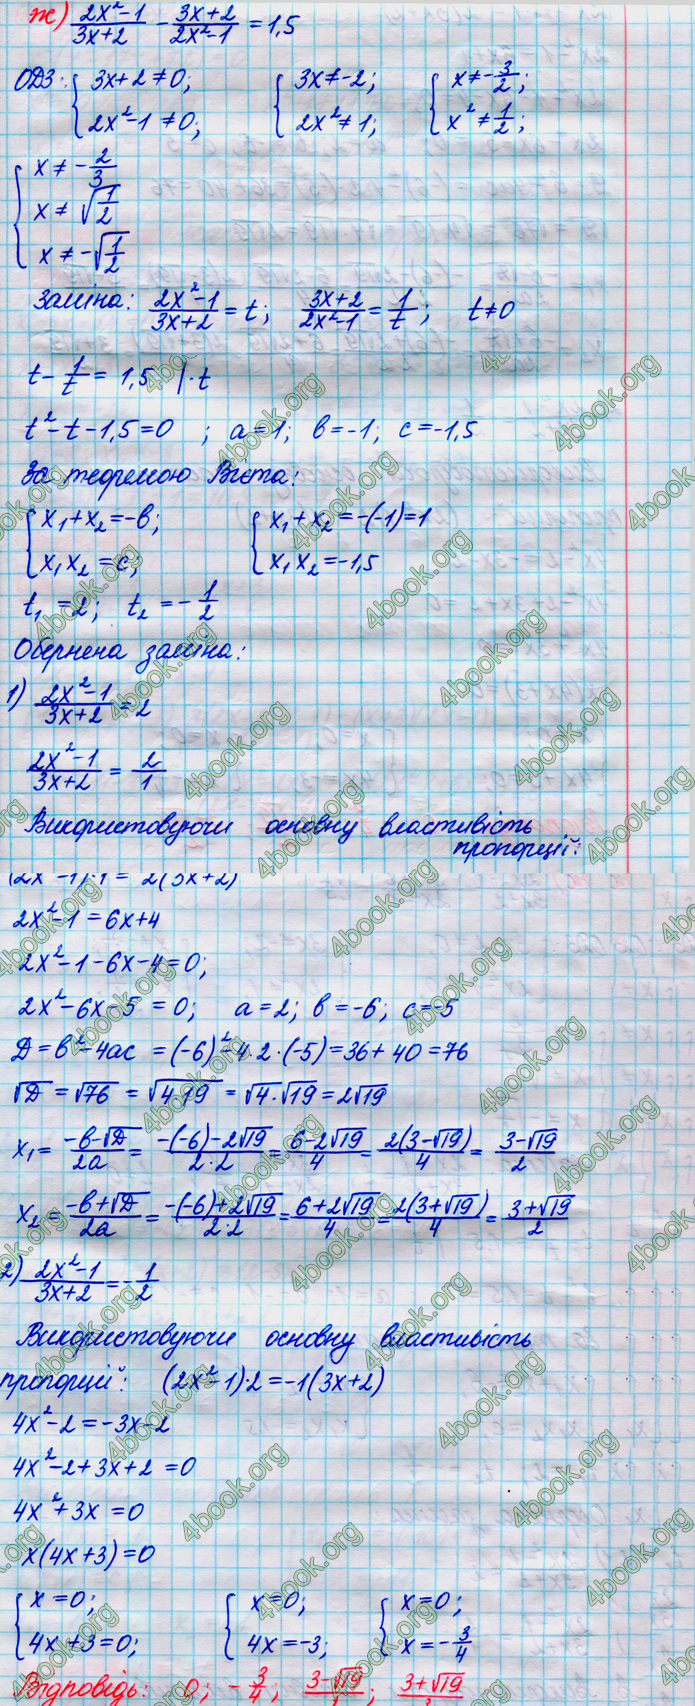 ж) (2x²-1)/(3x+2) - (3x+2)/(2x²-1) = 1,5
ОДЗ: { 3x+2≠0; { 3x≠-2; { x≠-3/2;
2x²-1≠0; 2x²≠1; x²≠1/2;
{ x≠-2/3
x≠√(1/2)
x≠-√(1/2)
Заміна: (2x²-1)/(3x+2) = t; (3x+2)/(2x²-1) = 1/t; t≠0
t - 1/t = 1,5 |·t
t²-t-1,5=0 ; a=1; в=-1; c=-1,5
За теоремою Вієта:
{ x₁+x₂=-в; { x₁+x₂=-(-1)=1
x₁x₂=c; x₁x₂=-1,5
t₁=2; t₂=-1/2
Обернена заміна:
1) (2x²-1)/(3x+2) = 2
(2x²-1)/(3x+2) = 2/1
Використовуючи основну властивість
пропорції:
(2x²-1)·1 = 2(3x+2)
2x²-1=6x+4
2x²-1-6x-4=0;
2x²-6x-5=0; a=2; в=-6; c=-5
Д=в²-4ac=(-6)²-4·2·(-5)=36+40=76
√Д=√76=√(4·19)=√4·√19=2√19
x₁=(-в-√Д)/(2a)=(-(-6)-2√19)/(2·2)=(6-2√19)/4=(2(3-√19))/4=(3-√19)/2
x₂=(-в+√Д)/(2a)=(-(-6)+2√19)/(2·2)=(6+2√19)/4=(2(3+√19))/4=(3+√19)/2
2) (2x²-1)/(3x+2)=-1/2
Використовуючи основну властивість
пропорції: (2x²-1)·2=-1(3x+2)
4x²-2=-3x-2
4x²-2+3x+2=0
4x²+3x=0
x(4x+3)=0
{ x=0; { x=0; { x=0;
4x+3=0; 4x=-3; x=-3/4
Відповідь: 0; -3/4; 3-√19; 3+√19
4book.org